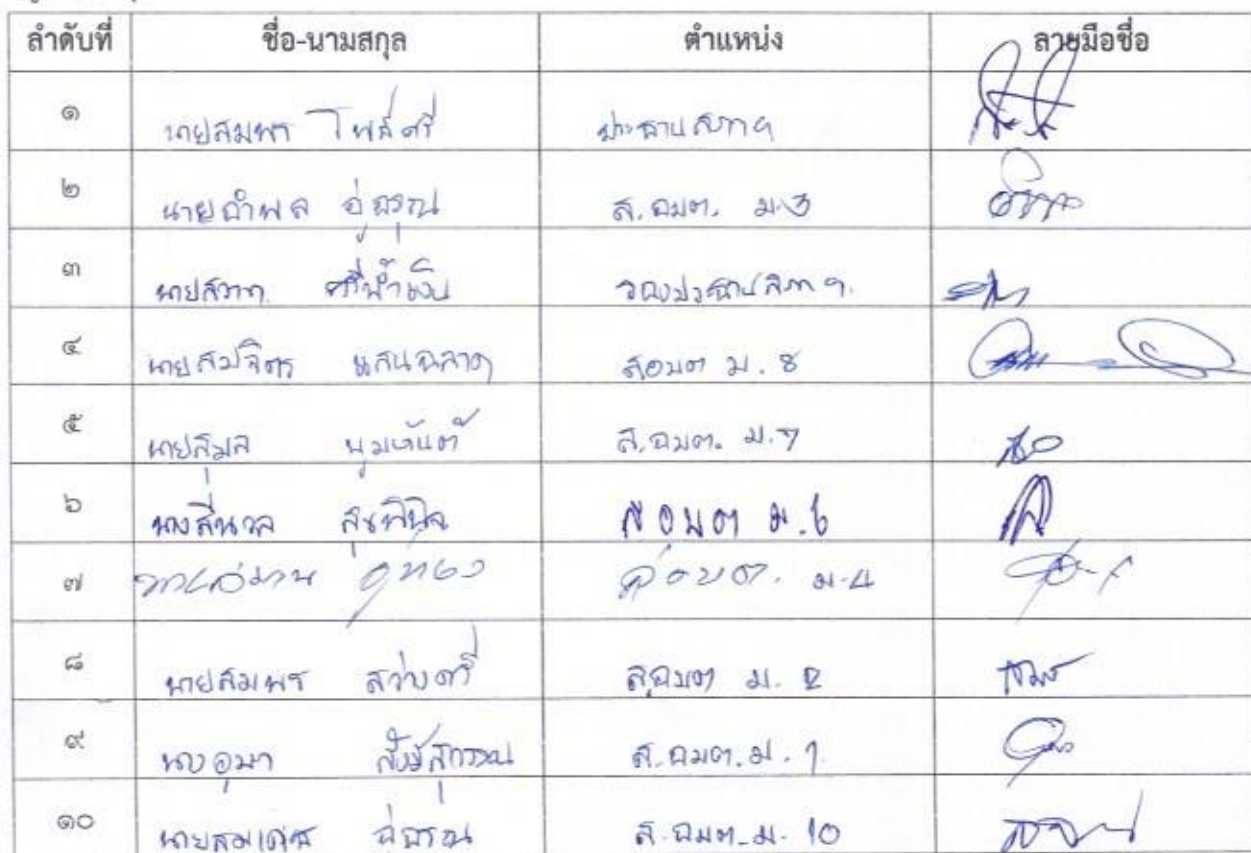 ลำดับที่ ชื่อ-นามสกุล ตำแหน่ง ลายมือชื่อ
๑ นายสมพร โพธิ์ศรี ประธานสภาฯ
๒ นายอำพล อู่อรุณ ส.อบต. ม.3
๓ นายสวาท ศรีน้ำเงิน รองประธานสภาฯ.
๔ นายสมจิตร แสนฉลาด สอบต ม. 8
๕ นายสุมล พุมหันต์ ส.อบต. ม.7
๖ นางสีนวล สุขพินิจ สอบต ม.6
๗ สอบต. ม.4
๘ นายสมพร สว่างศรี ส.อบต ม. 2
๙ นางอุมา สังข์สุวรรณ ส.อบต.ม. 9
๑๐ นายสมเดช อู่อรุณ ส.อบต.ม. 10